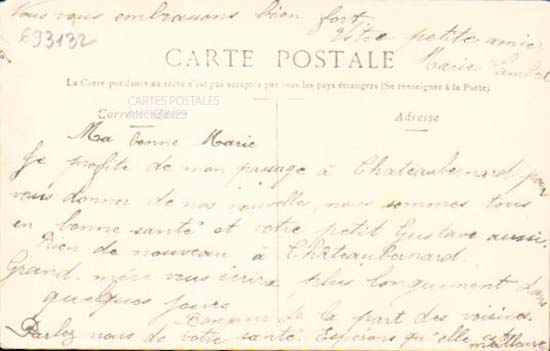 Nous vous embrassons bien fort
Votre petite amie
Marie Lambert
693132
CARTE POSTALE
La Correspondance au recto n'est pas acceptée par tous les pays étrangers (Se renseigner à la Poste)
CARTES POSTALES
ANCIENNES
Correspondance
Adresse
Ma bonne Marie
Je profite de mon passage à Chateaubernard pour
vous donner de nos nouvelles, nous sommes tous
en bonne santé et votre petit Gustave aussi.
Rien de nouveau à Châteaubernard.
Grand-mère vous écrira plus longuement dans
quelques jours
Bonjour de la part des voisins.
Parlez nous de votre santé. Espérons qu'elle est
meilleure